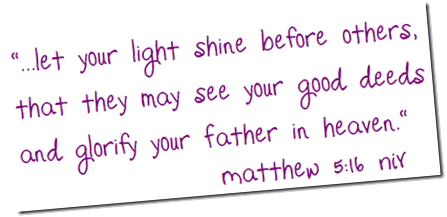 "...let your light shine before others,
that they may see your good deeds
and glorify your father in heaven."
matthew 5:16 niv